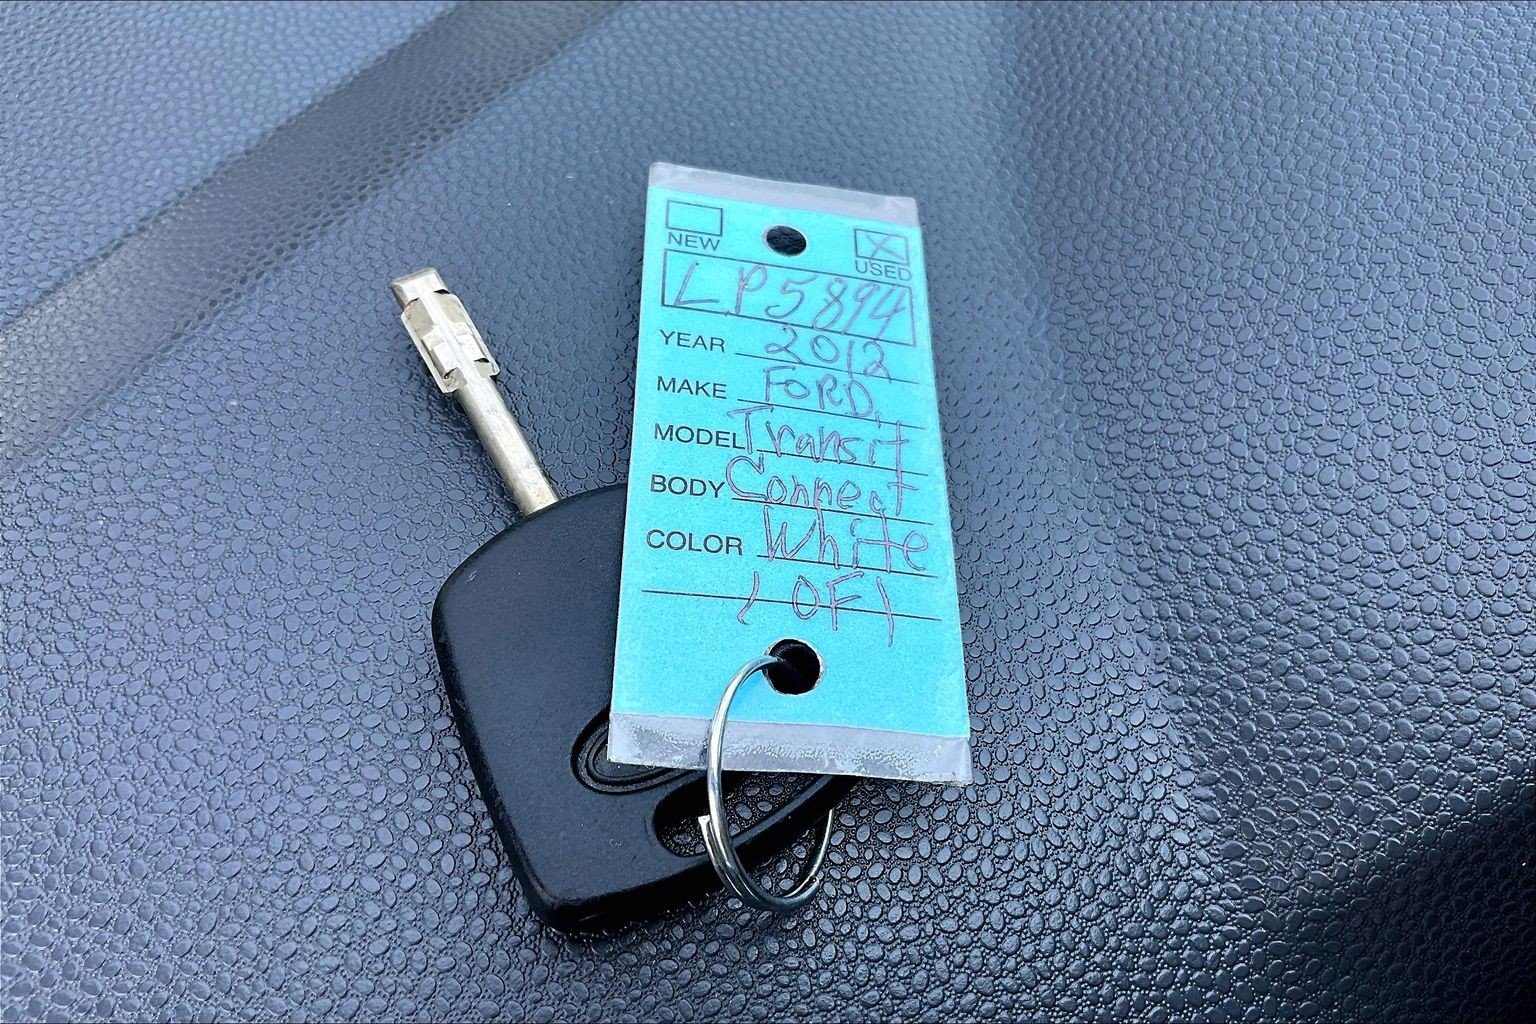 NEW USED
LP5894
YEAR 2012
MAKE FORD
MODEL Transit
BODY Connect
COLOR White
1 OF 1